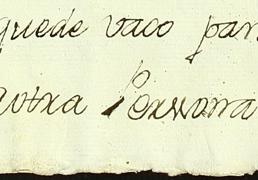 quede vaco para
quotra Persona